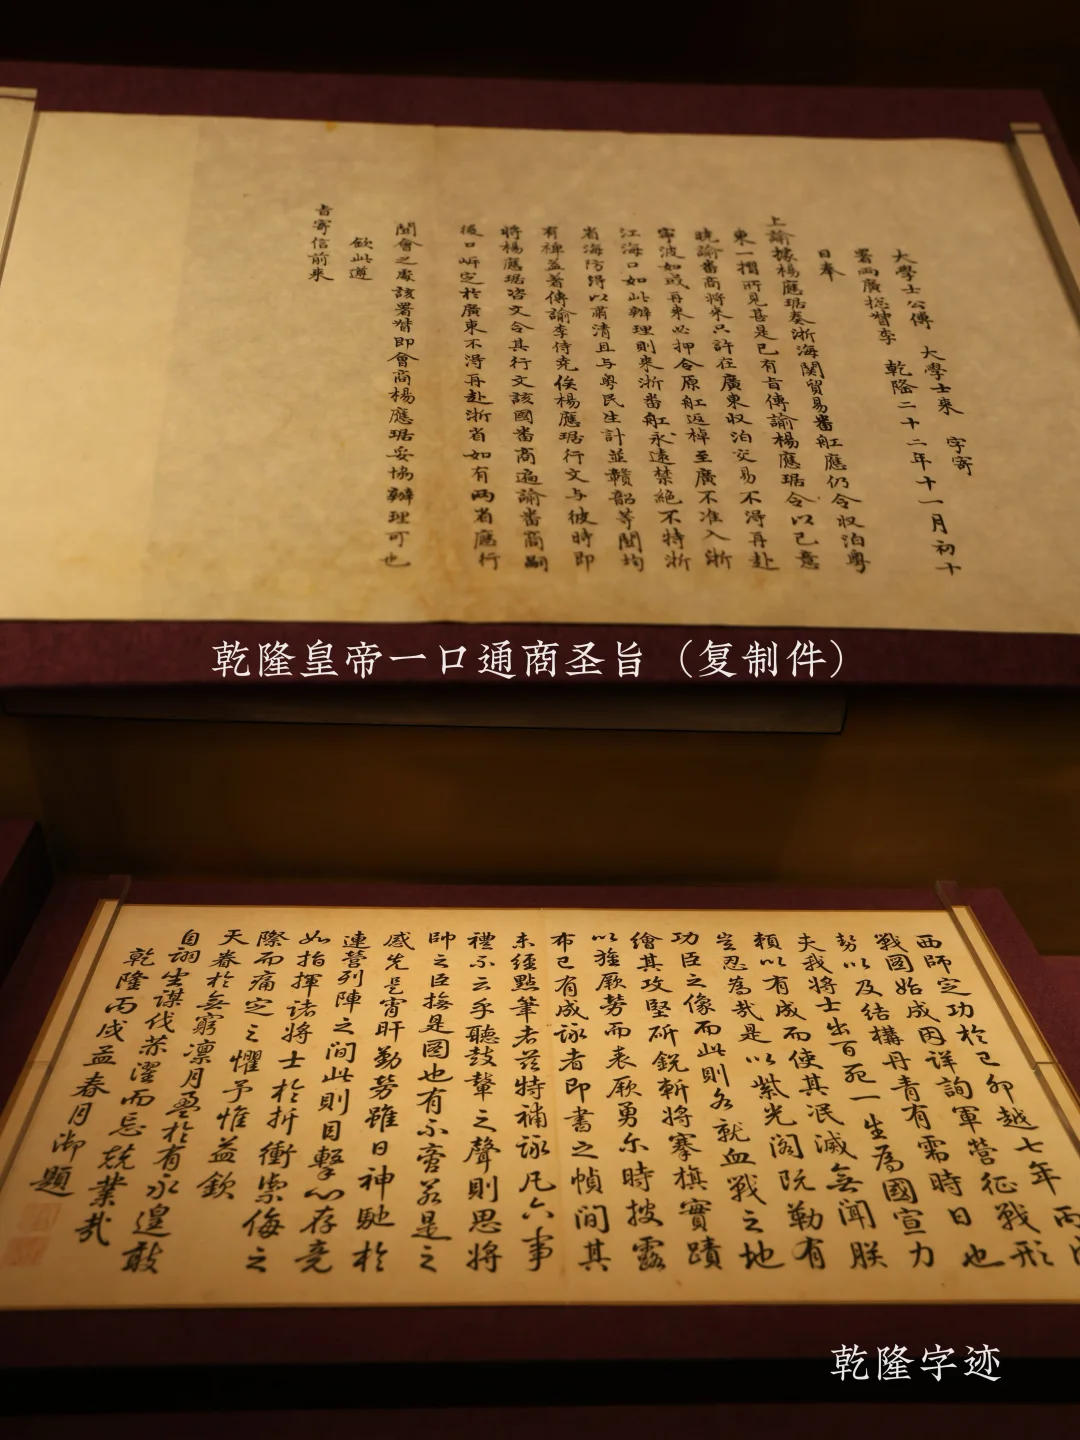 大學士公傳　大學士來　字寄
署兩廣總督李　乾隆二十二年十一月初十
日奉
上諭據楊應琚奏浙海関貿易番舡應仍令収泊粵
東一摺所見甚是已有旨傳諭楊應琚令以己意
曉諭番商將来只許在廣東収泊交易不淂再赴
寧波如或再来必押令原舡返棹至廣不准入浙
江海口如此辦理則来浙番舡永遠禁絶不特浙
省海防得以肅清且与粤民生計並贛韶等関均
有裨益著傳諭李侍尭俟楊應琚行文与彼時即
將楊應琚咨文令其行文該國番商遍諭番商嗣
後口岸定扵廣東不淂再赴浙省如有兩省應行
関會之處該署督即會商楊應琚妥協辦理可也
欽此遵
旨寄信前来
乾隆皇帝一口通商圣旨（复制件）
西師定功於己卯越七年丙戌
戰圖始成因詳詢軍營征戰形
勢以及結構丹青有需時日也
夫我將士出百死一生為國宣力
賴以有成而使其泯滅無聞朕
豈忍為哉是以紫光閣既勒有
功臣之像而此則各就血戰之地
繪其攻堅斫銳斬將搴旗實蹟
以旌厥勞而表厥勇尓時披露
布已有成詠者即書之幀間其
未經點筆者茲特補詠凡六事
禮不云乎聽鼓鼙之聲則思將
帥之臣撫是圖也有不啻若是之
感先是宵旰勤勞雖日神馳於
連營列陣之間此則目擊心存竟
如指揮諸將士於折衝禦侮之
際而痛定之懼予惟益欽
天眷於無窮凛月盈於有永遑敢
自詡生謀伐荼濯而忘兢業哉
乾隆丙戌孟春月御題
乾隆字迹